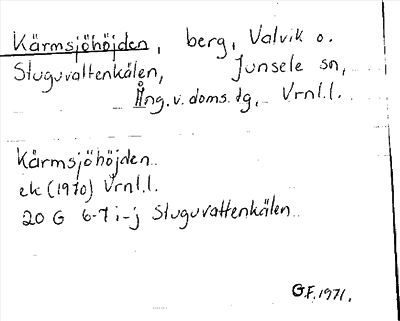 Kärmsjöhöjden, berg, Valvik o.
Stuguvattenkälen, Junsele sn,
Ång. v. doms. tg, Vrnl.l.
Kärmsjöhöjden
ek (1970) Vrnl.l.
20 G 6-7 i-j Stuguvattenkälen
G.F. 1971.